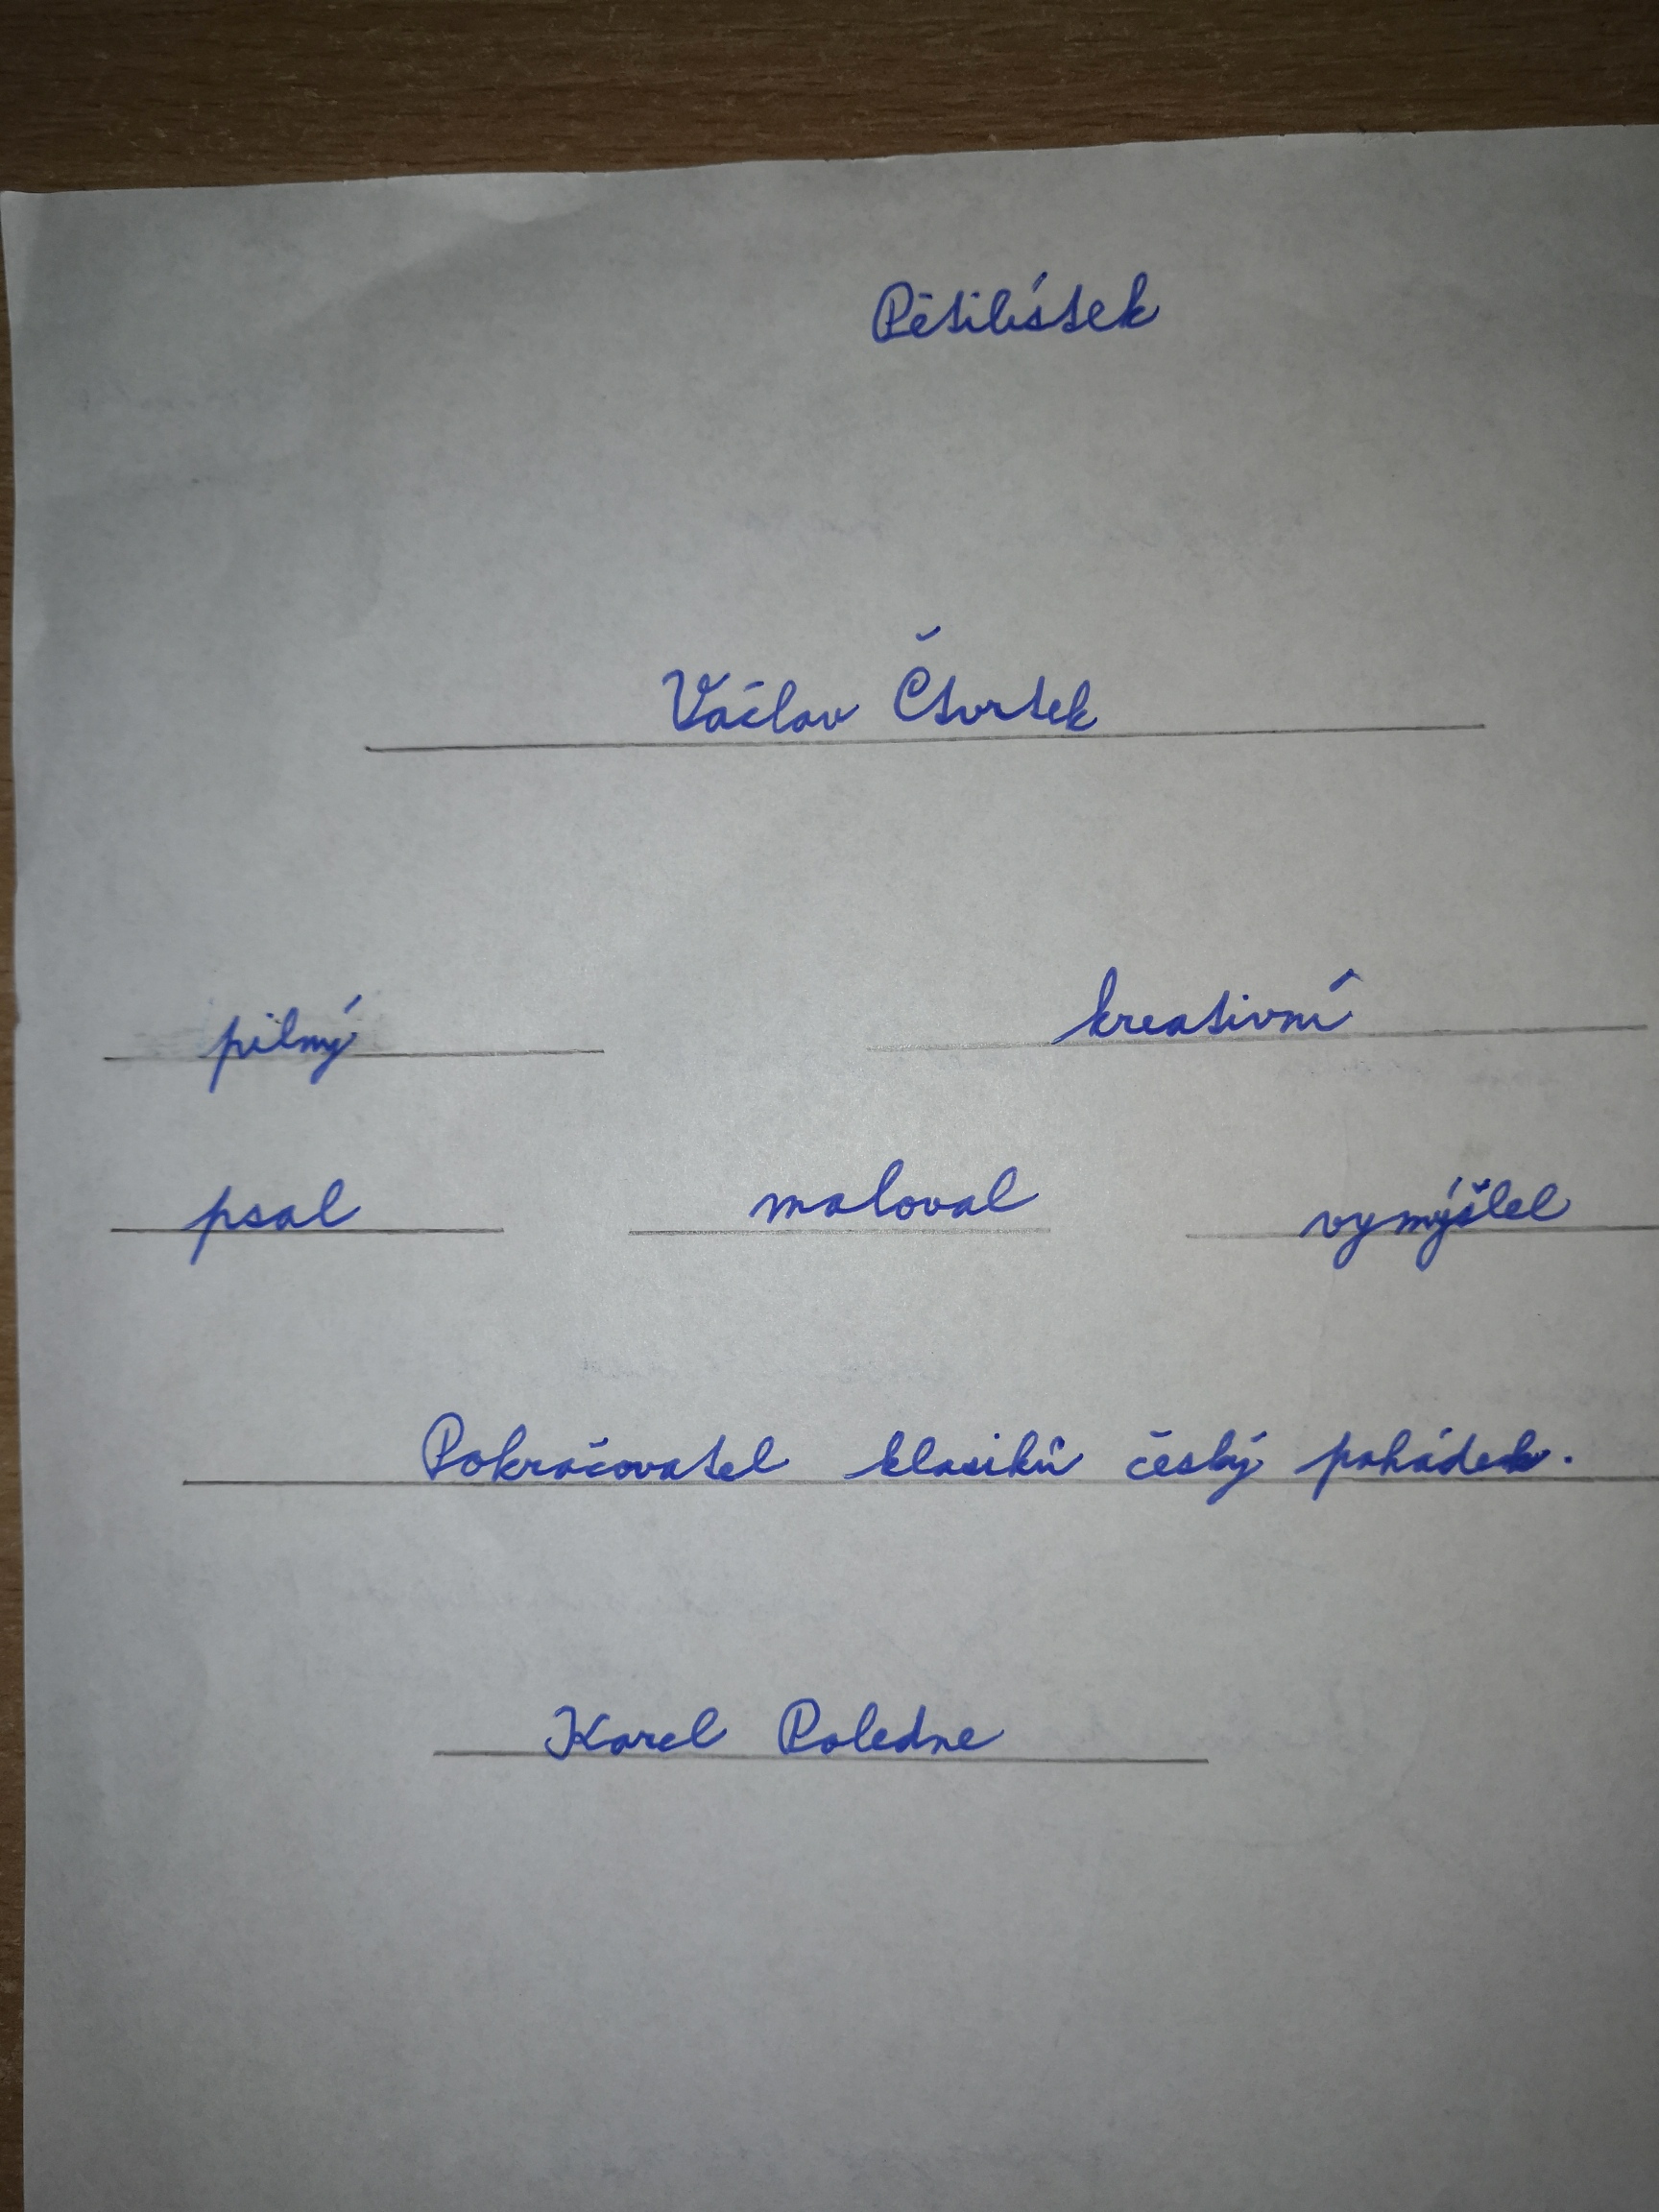 Pětilístek
Václav Čtvrtek
pilný kreativní
psal maloval vymýšlel
Pokračovatel klasiků český pohádek.
Karel Poledne